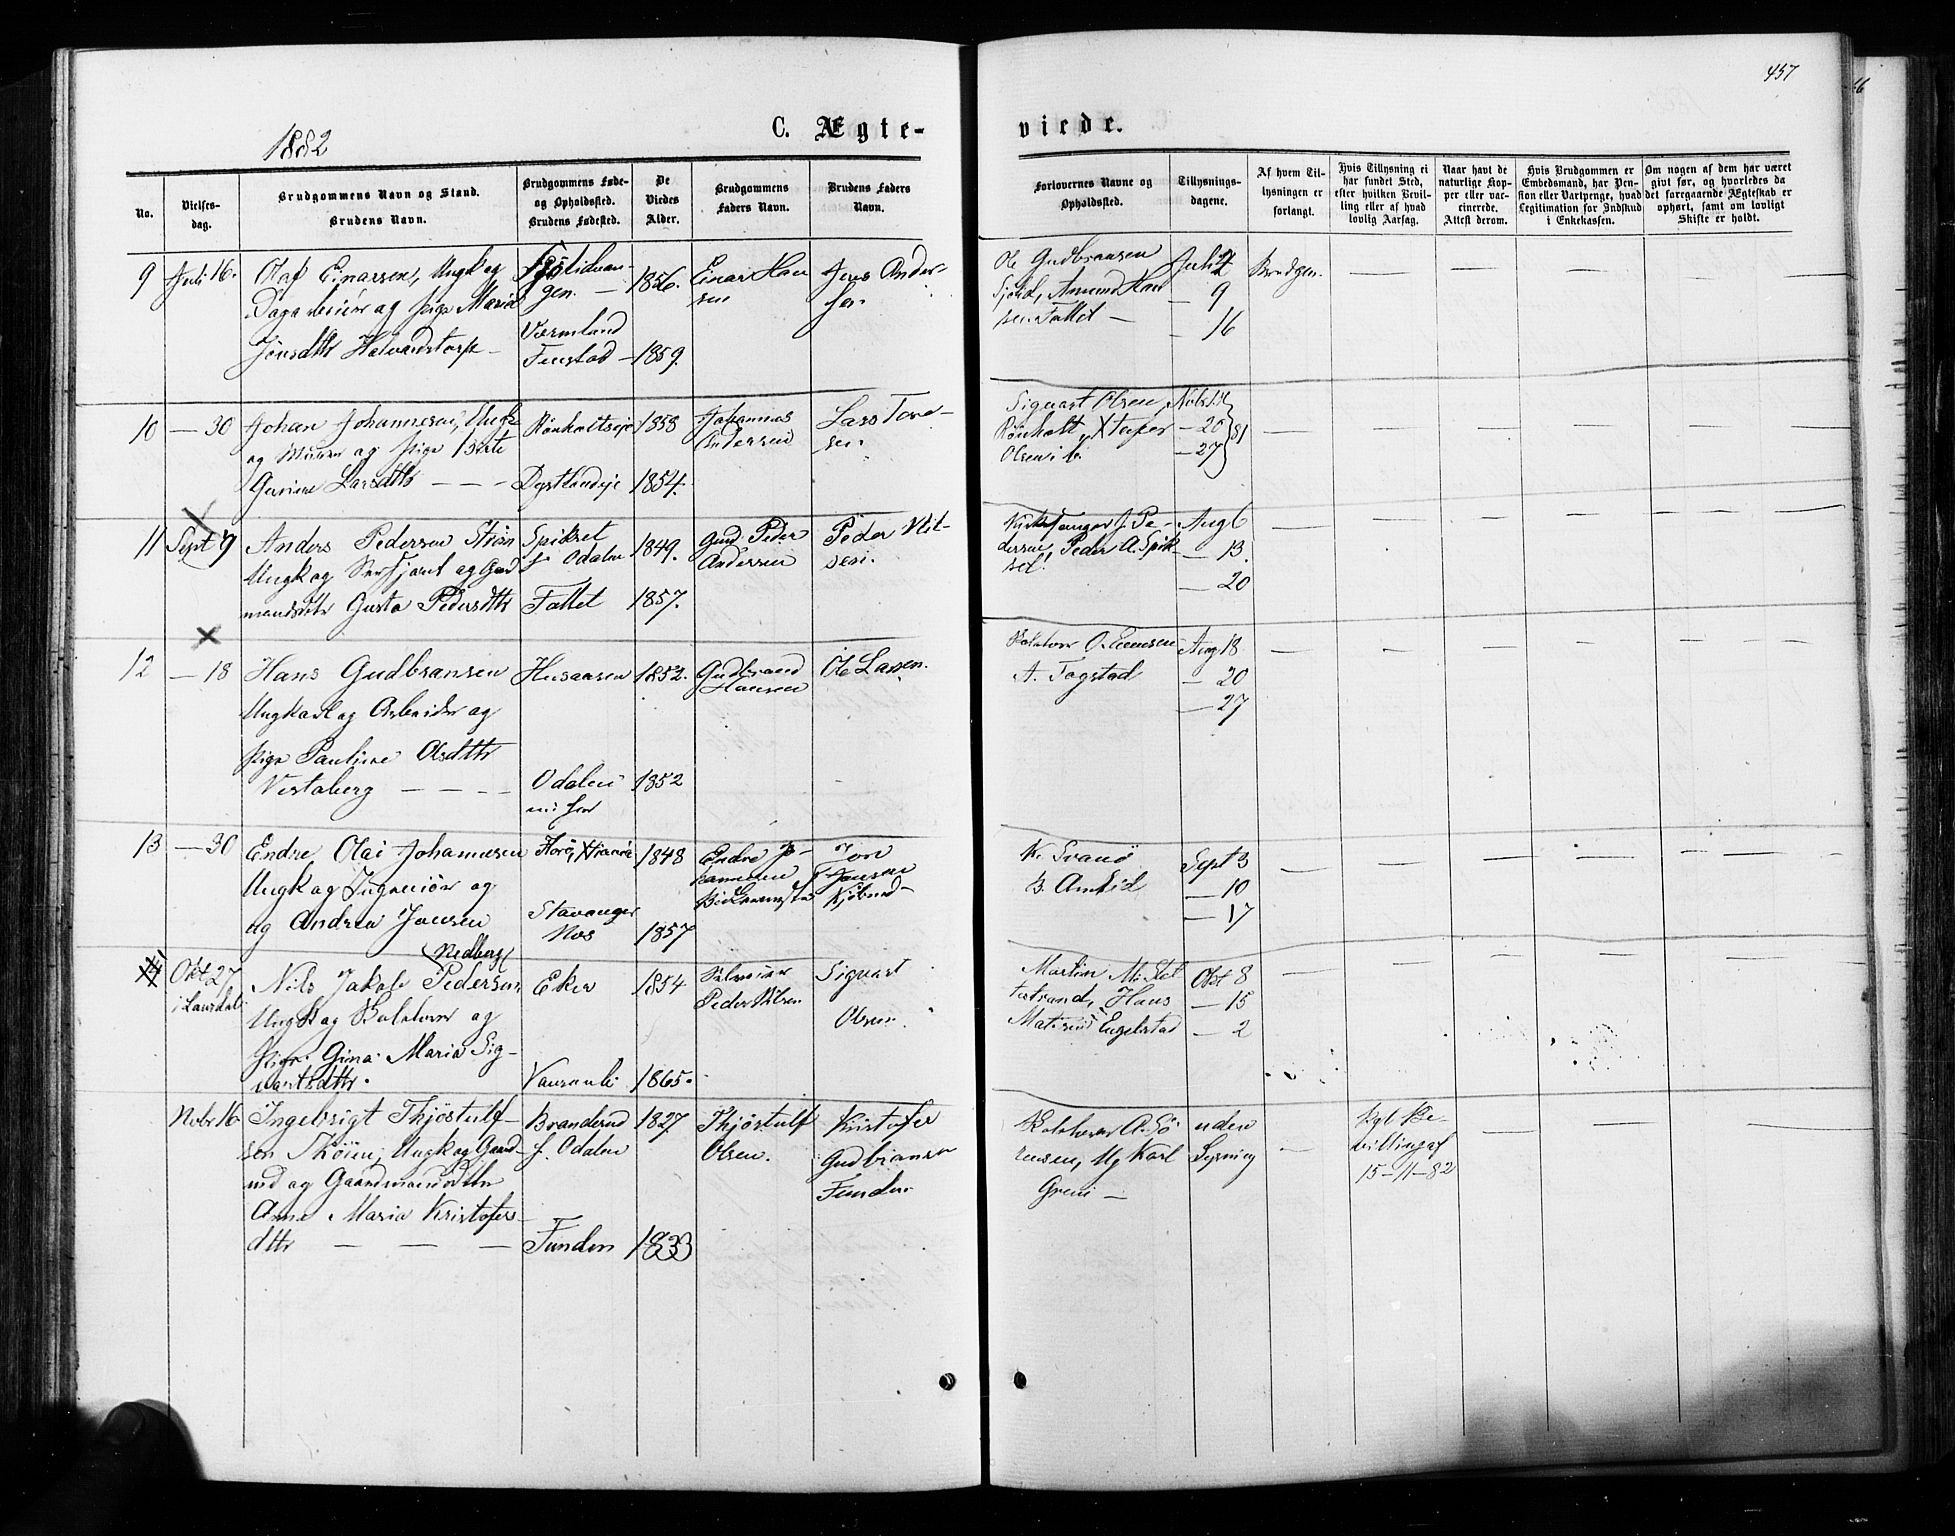 457
1882
C. Ægte-
viede.
No.
Vielses-
dag.
Brudgommens Navn og Stand.
Brudens Navn.
Brudgommens Føde-
og Opholdssted.
Brudens Fødested.
De
Viedes
Alder.
Brudgommens
Faders Navn.
Brudens Faders
Navn.
Forlovernes Navne og
Opholdssted.
Tillysnings-
dagene.
Af hvem Til-
lysningen er
forlangt.
Hvis Tillysning ei
har fundet Sted,
efter hvilken Bevil-
ling eller af hvad
lovlig Aarsag.
Naar havt de
naturlige Kop-
per eller vac-
cinerede.
Attest derom.
Hvis Brudgommen er
Embedsmand, har Pen-
sion eller Vartpenge, hvad
Legitimation for Indskud
i Enkekassen.
Om nogen af dem har været
givt før, og hvorledes da
det foregaaende Ægteskab er
ophørt, samt om lovligt
Skifte er holdt.
9 Juli 16.
Olaf Einarsen, Ungk og
og Pige Maria
Jonsdttr Halvardstorp
gen.
Værmland
Fenstad
1856.
1859.
Einar Han
sen
Jens Ander-
sen
Ole Gudbransen
Amund Han
sen Fallet
Juli 2
— 9
— 16
Brudgom.
10 — 30
Johan Johannesen, Ungk
og Murer og Pige Berte
Gurine Larsdttr
Rønholtseje
Dystlandeje
1858
1854.
Johannes
Andersen
Lars Tore-
sen
Sigvart Olsen
Rønholt,
Olsen i b.
— 20
— 27
81
11 Sept 7
Anders Pedersen Strøm
Ungk og og Gaard
mandsdttr Gusta Pedersdttr
Spikset
f. Odalen
Fallet
1849.
1857.
Gmd Peder
Andersen
Peder Nil-
sen.
Kirkesanger J. Pe-
dersen, Peder A. Spik-
set.
Aug 6
— 13.
— 20
12 — 18
Hans Gudbransen
Ungkarl og Arbeider og
Pige Pauline Olsdttr
Vestaberg
Husaasen
Odalen
1852.
1852
Gudbrand
Hansen
Ole Larsen.
A. Fogstad
Aug 18
— 20
— 27
13 — 30
Endre Olai Johannesen
Ungk og Ingeniør og
og Andrea Jansen
Stavanger
Nes
1848
1857
Endre Jo-
hannesen
Jon
Jansen
K. Svanø
B. Amlid
Sept 3
— 10
— 17
14 Okt 27
Nedberg
Nils Jakob Pedersen
Ungk og og
Pige Gina Maria Sig-
vartsdttr.
Eker
1854
1865.
Peder Nilsen
Sigvart
Olsen.
Martin M. Slet
testrand, Hans
Engelstad
Okt 8
— 15
— 2
Nobr 16
Ingebrigt Thjøstulf-
sen Ungk og Gaard-
md og Gaardmandsdttr
Anne Maria Kristofers-
dttr
Branderud
f. Odalen
Funden
1827
1833
Thjøstulf
Olsen.
Kristofer
Gudbransen
Funden
A. Sø-
rensen, Ug Karl
Greni
uden
Lysning
Kgl Be-
villing af
15-11-82